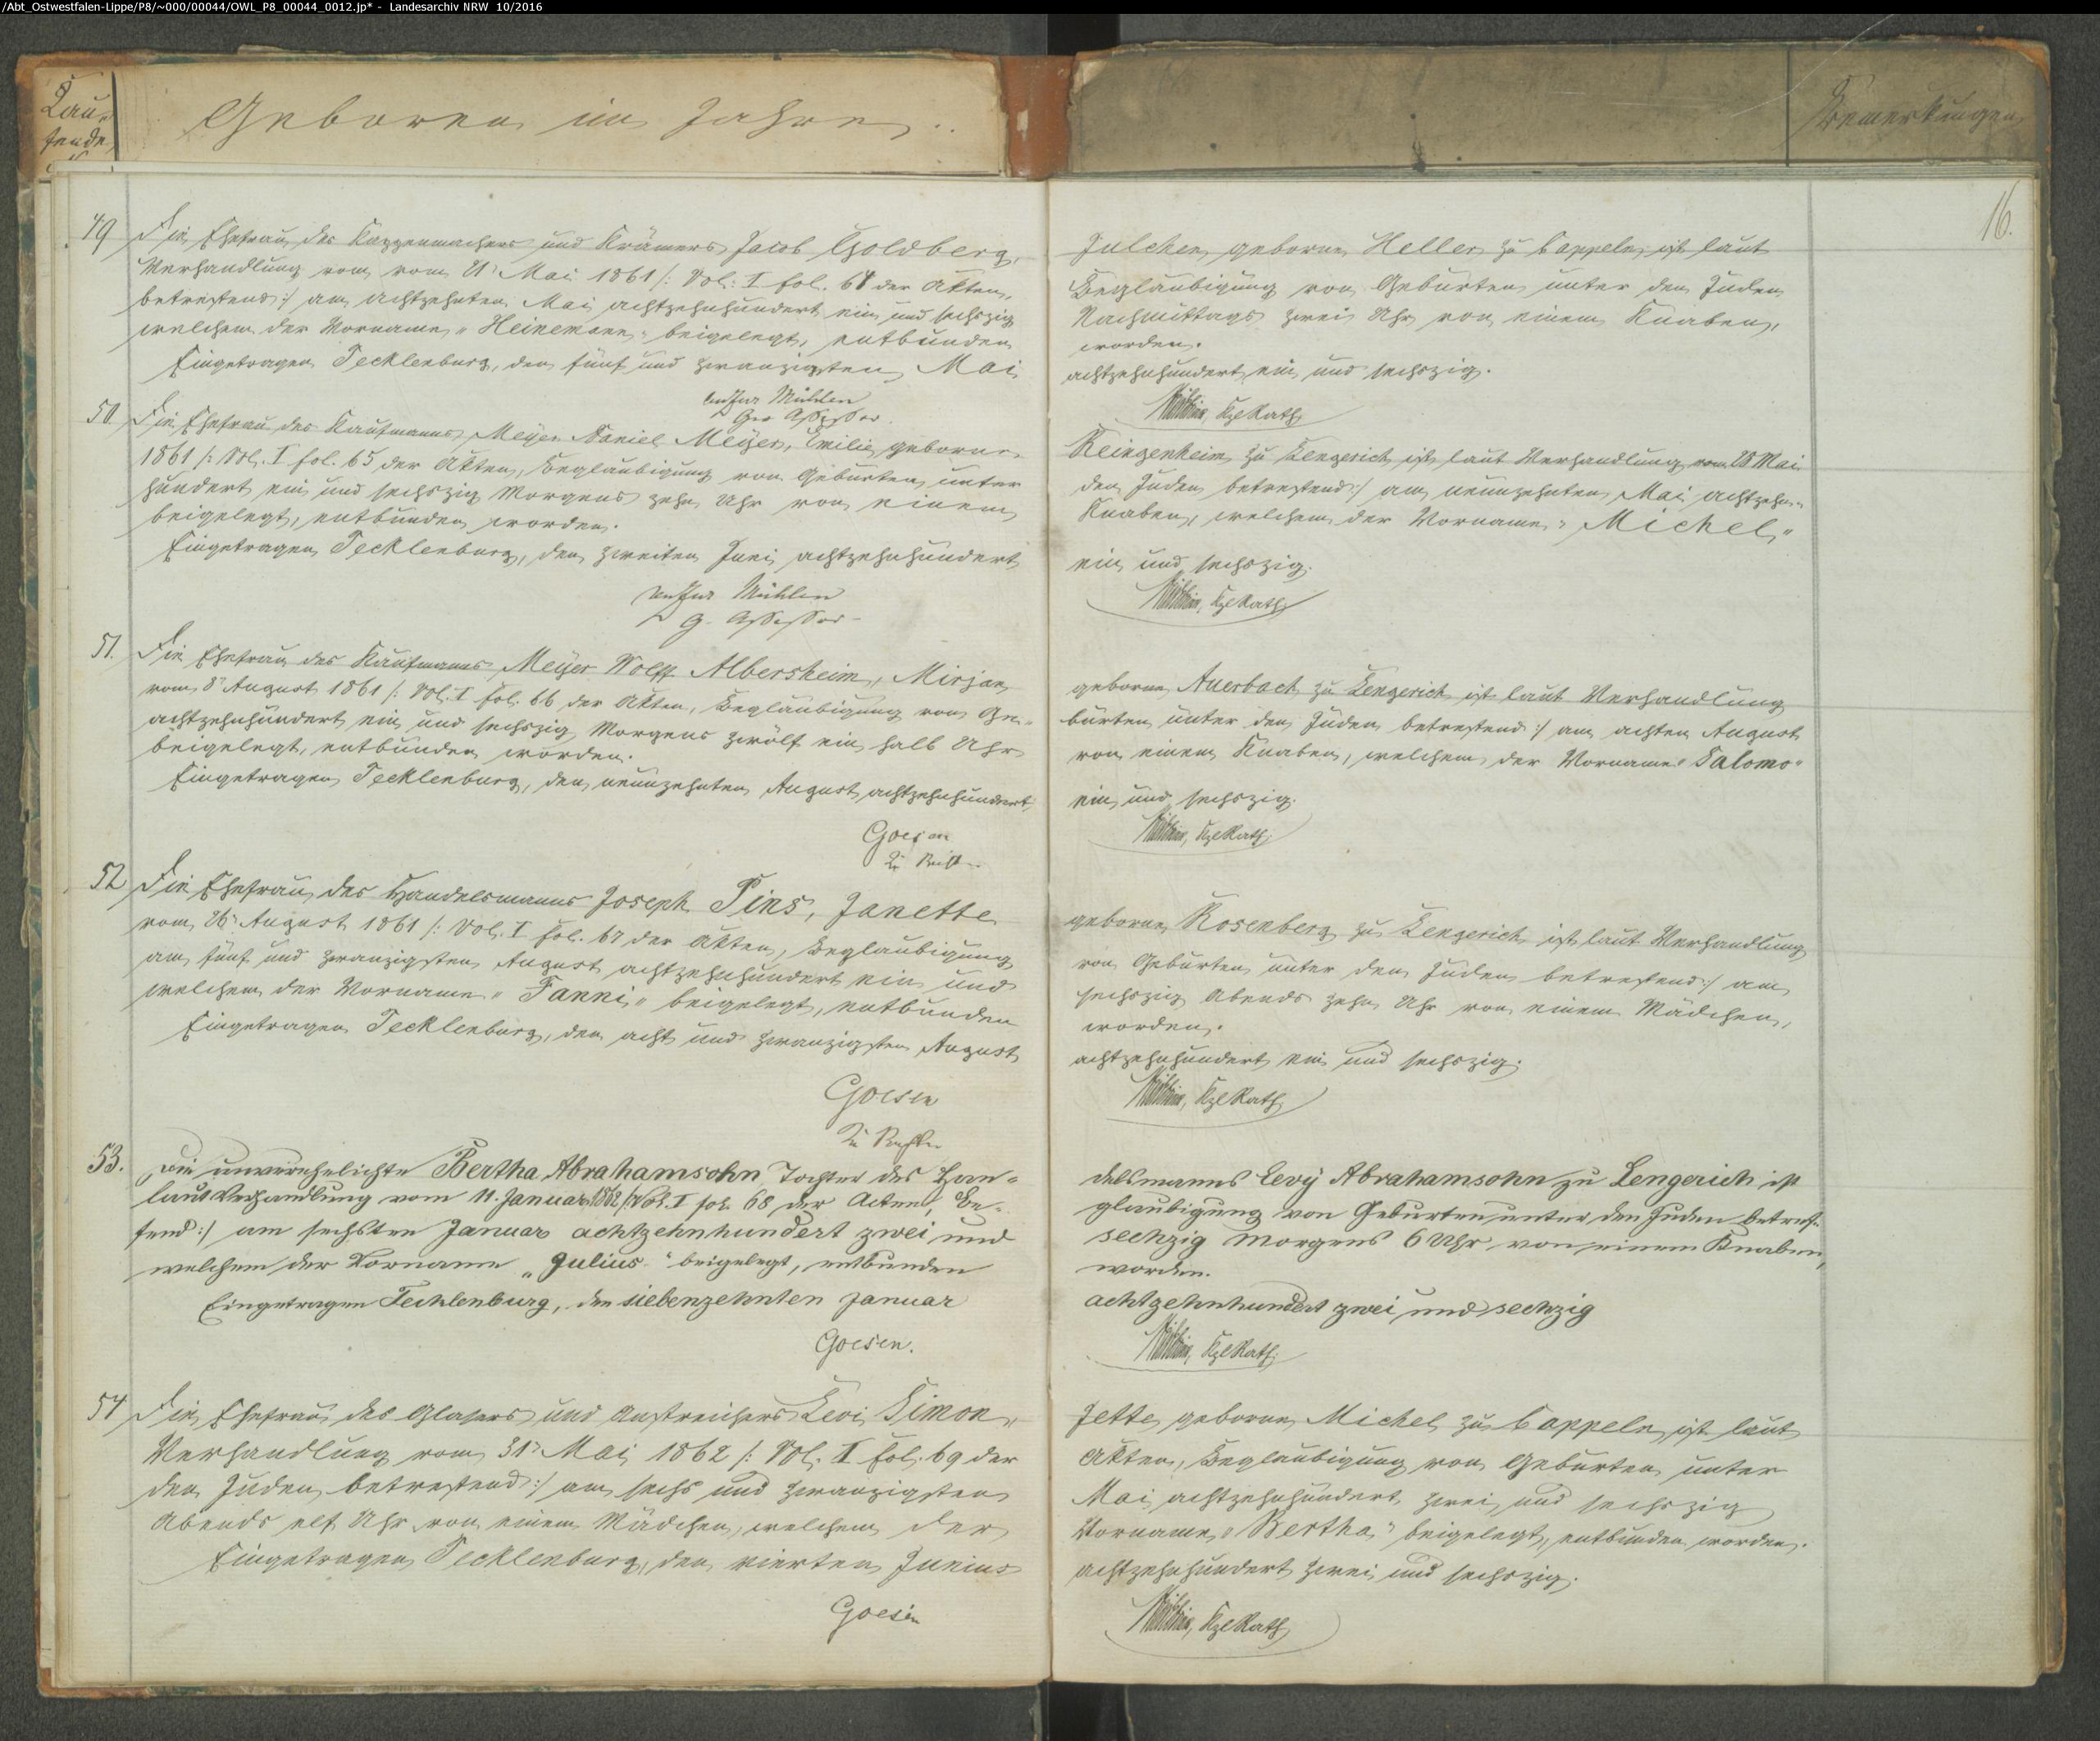 /Abt_Ostwestfalen-Lippe/P8/~000/00044/OWL_P8_00044_0012.jp* - Landesarchiv NRW 10/2016
Lau-
fende
Geboren im Jahre
Bemerkungen
16.
49 Die Ehefrau des Kappenmachers und Krämers Jacob Goldberg, Julchen geborne Heller zu Cappeln ist laut
Verhandlung vom vom 21t Mai 1861 /: Vol: I fol. 64 der Akten, Beglaubigung von Geburten unter den Juden
betreffend :/ am achtzehnten Mai achtzehnhundert ein und sechszig Nachmittags zwei Uhr von einem Knaben,
welchem der Vorname „Heinemann“ beigelegt, entbunden worden.
Eingetragen Tecklenburg, den fünf und zwanzigsten Mai achtzehnhundert ein und sechszig.
zur Mühlen
Ger Assessor
KzlRath
50. Die Ehefrau des Kaufmanns Meyer Daniel Meyer, Emilie geborne Reingenheim zu Lengerich ist laut Verhandlung vom 28 Mai
1861 /: Vol. I fol. 65 der Akten, Beglaubigung von Geburten unter den Juden betreffend :/ am neunzehnten Mai achtzehn-
hundert ein und sechszig Morgens zehn Uhr von einem Knaben, welchem der Vorname „Michel“
beigelegt, entbunden worden.
Eingetragen Tecklenburg, den zweiten Juni achtzehnhundert ein und sechszig.
zur Mühlen
G. Assessor
KzlRath
51. Die Ehefrau des Kaufmanns Meyer Wolff Albersheim, Mirjan geborne Auerbach zu Lengerich ist laut Verhandlung
vom 8t August 1861 /: Vol. I fol. 66 der Akten, Beglaubigung von Ge- burten unter den Juden betreffend :/ am achten August
achtzehnhundert ein und sechszig Morgens zwölf ein halb Uhr von einem Knaben, welchem der Vorname „Salomo“
beigelegt, entbunden worden.
Eingetragen Tecklenburg, den neunzehnten August achtzehnhundert ein und sechszig.
Goesen
KzlRath
52 Die Ehefrau des Handelsmanns Joseph Pins, Janette geborne Rosenberg zu Lengerich ist laut Verhandlung
vom 26t August 1861 /: Vol. I fol. 67 der Akten, Beglaubigung von Geburten unter den Juden betreffend :/ am
am fünf und zwanzigsten August achtzehnhundert ein und sechszig Abends zehn Uhr von einem Mädchen,
welchem der Vorname „Fanni“ beigelegt, entbunden worden.
Eingetragen Tecklenburg, den acht und zwanzigsten August achtzehnhundert ein und sechszig.
Goesen
KzlRath
53. Die unverehelichte Bertha Abrahamsohn, Tochter des Han- delsmanns Levy Abrahamsohn zu Lengerich ist
laut Verhandlung vom 11. Januar 1862 /: Vol. I fol. 68 der Acten, Be- glaubigung von Geburten unter den Juden betref-
fend :/ am sechsten Januar achtzehnhundert zwei und sechzig Morgens 6 Uhr von einem Knaben,
welchem der Vorname „Julius“ beigelegt, entbunden worden.
Eingetragen Tecklenburg, den siebenzehnten Januar achtzehnhundert zwei und sechzig
Goesen.
KzlRath
54 Die Ehefrau des Glasers und Anstreichers Levi Simon, Jette geborne Michel zu Cappeln ist laut
Verhandlung vom 31t Mai 1862 /: Vol. I fol. 69 der Akten, Beglaubigung von Geburten unter
den Juden betreffend :/ am sechs und zwanzigsten Mai achtzehnhundert zwei und sechszig
Abends elf Uhr von einem Mädchen, welchem der Vorname „Bertha“ beigelegt, entbunden worden.
Eingetragen Tecklenburg, den vierten Junius achtzehnhundert zwei und sechszig.
Goesen
KzlRath